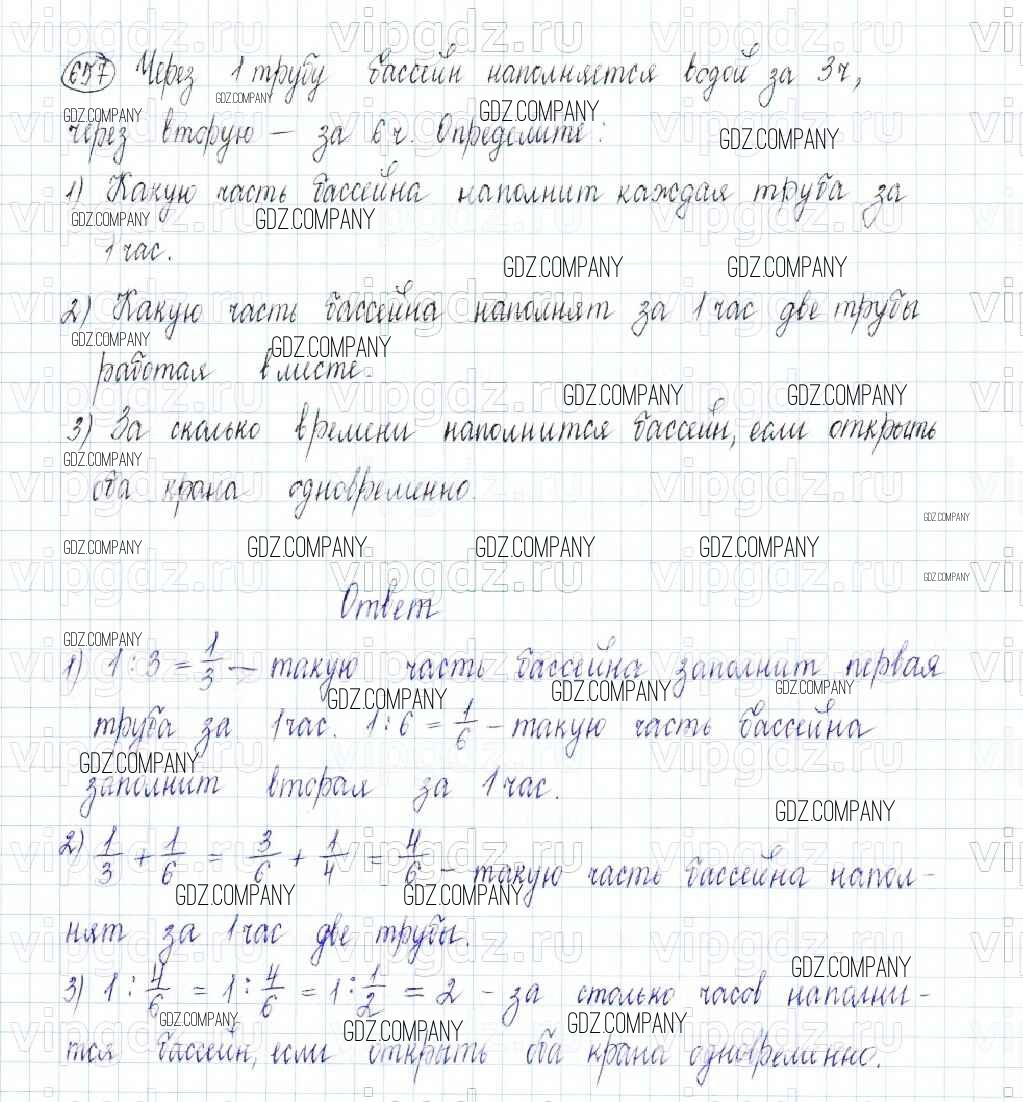 657 Через 1 трубу бассейн наполняется водой за 3ч,
через вторую — за 6 ч. Определите:
1) Какую часть бассейна наполнит каждая труба за
1 час.
2) Какую часть бассейна наполнят за 1 час две трубы
работая вместе.
3) За сколько времени наполнится бассейн, если открыть
оба крана одновременно.
Ответ
1) 1 : 3 = 1/3 — такую часть бассейна заполнит первая
труба за 1 час. 1 : 6 = 1/6 – такую часть бассейна
заполнит вторая за 1 час.
2) 1/3 + 1/6 = 3/6 + 1/4 = 4/6 – такую часть бассейна напол-
нят за 1 час две трубы.
3) 1 : 4/6 = 1 : 4/6 = 1 : 1/2 = 2 - за столько часов наполни-
тся бассейн, если открыть оба крана одновременно.